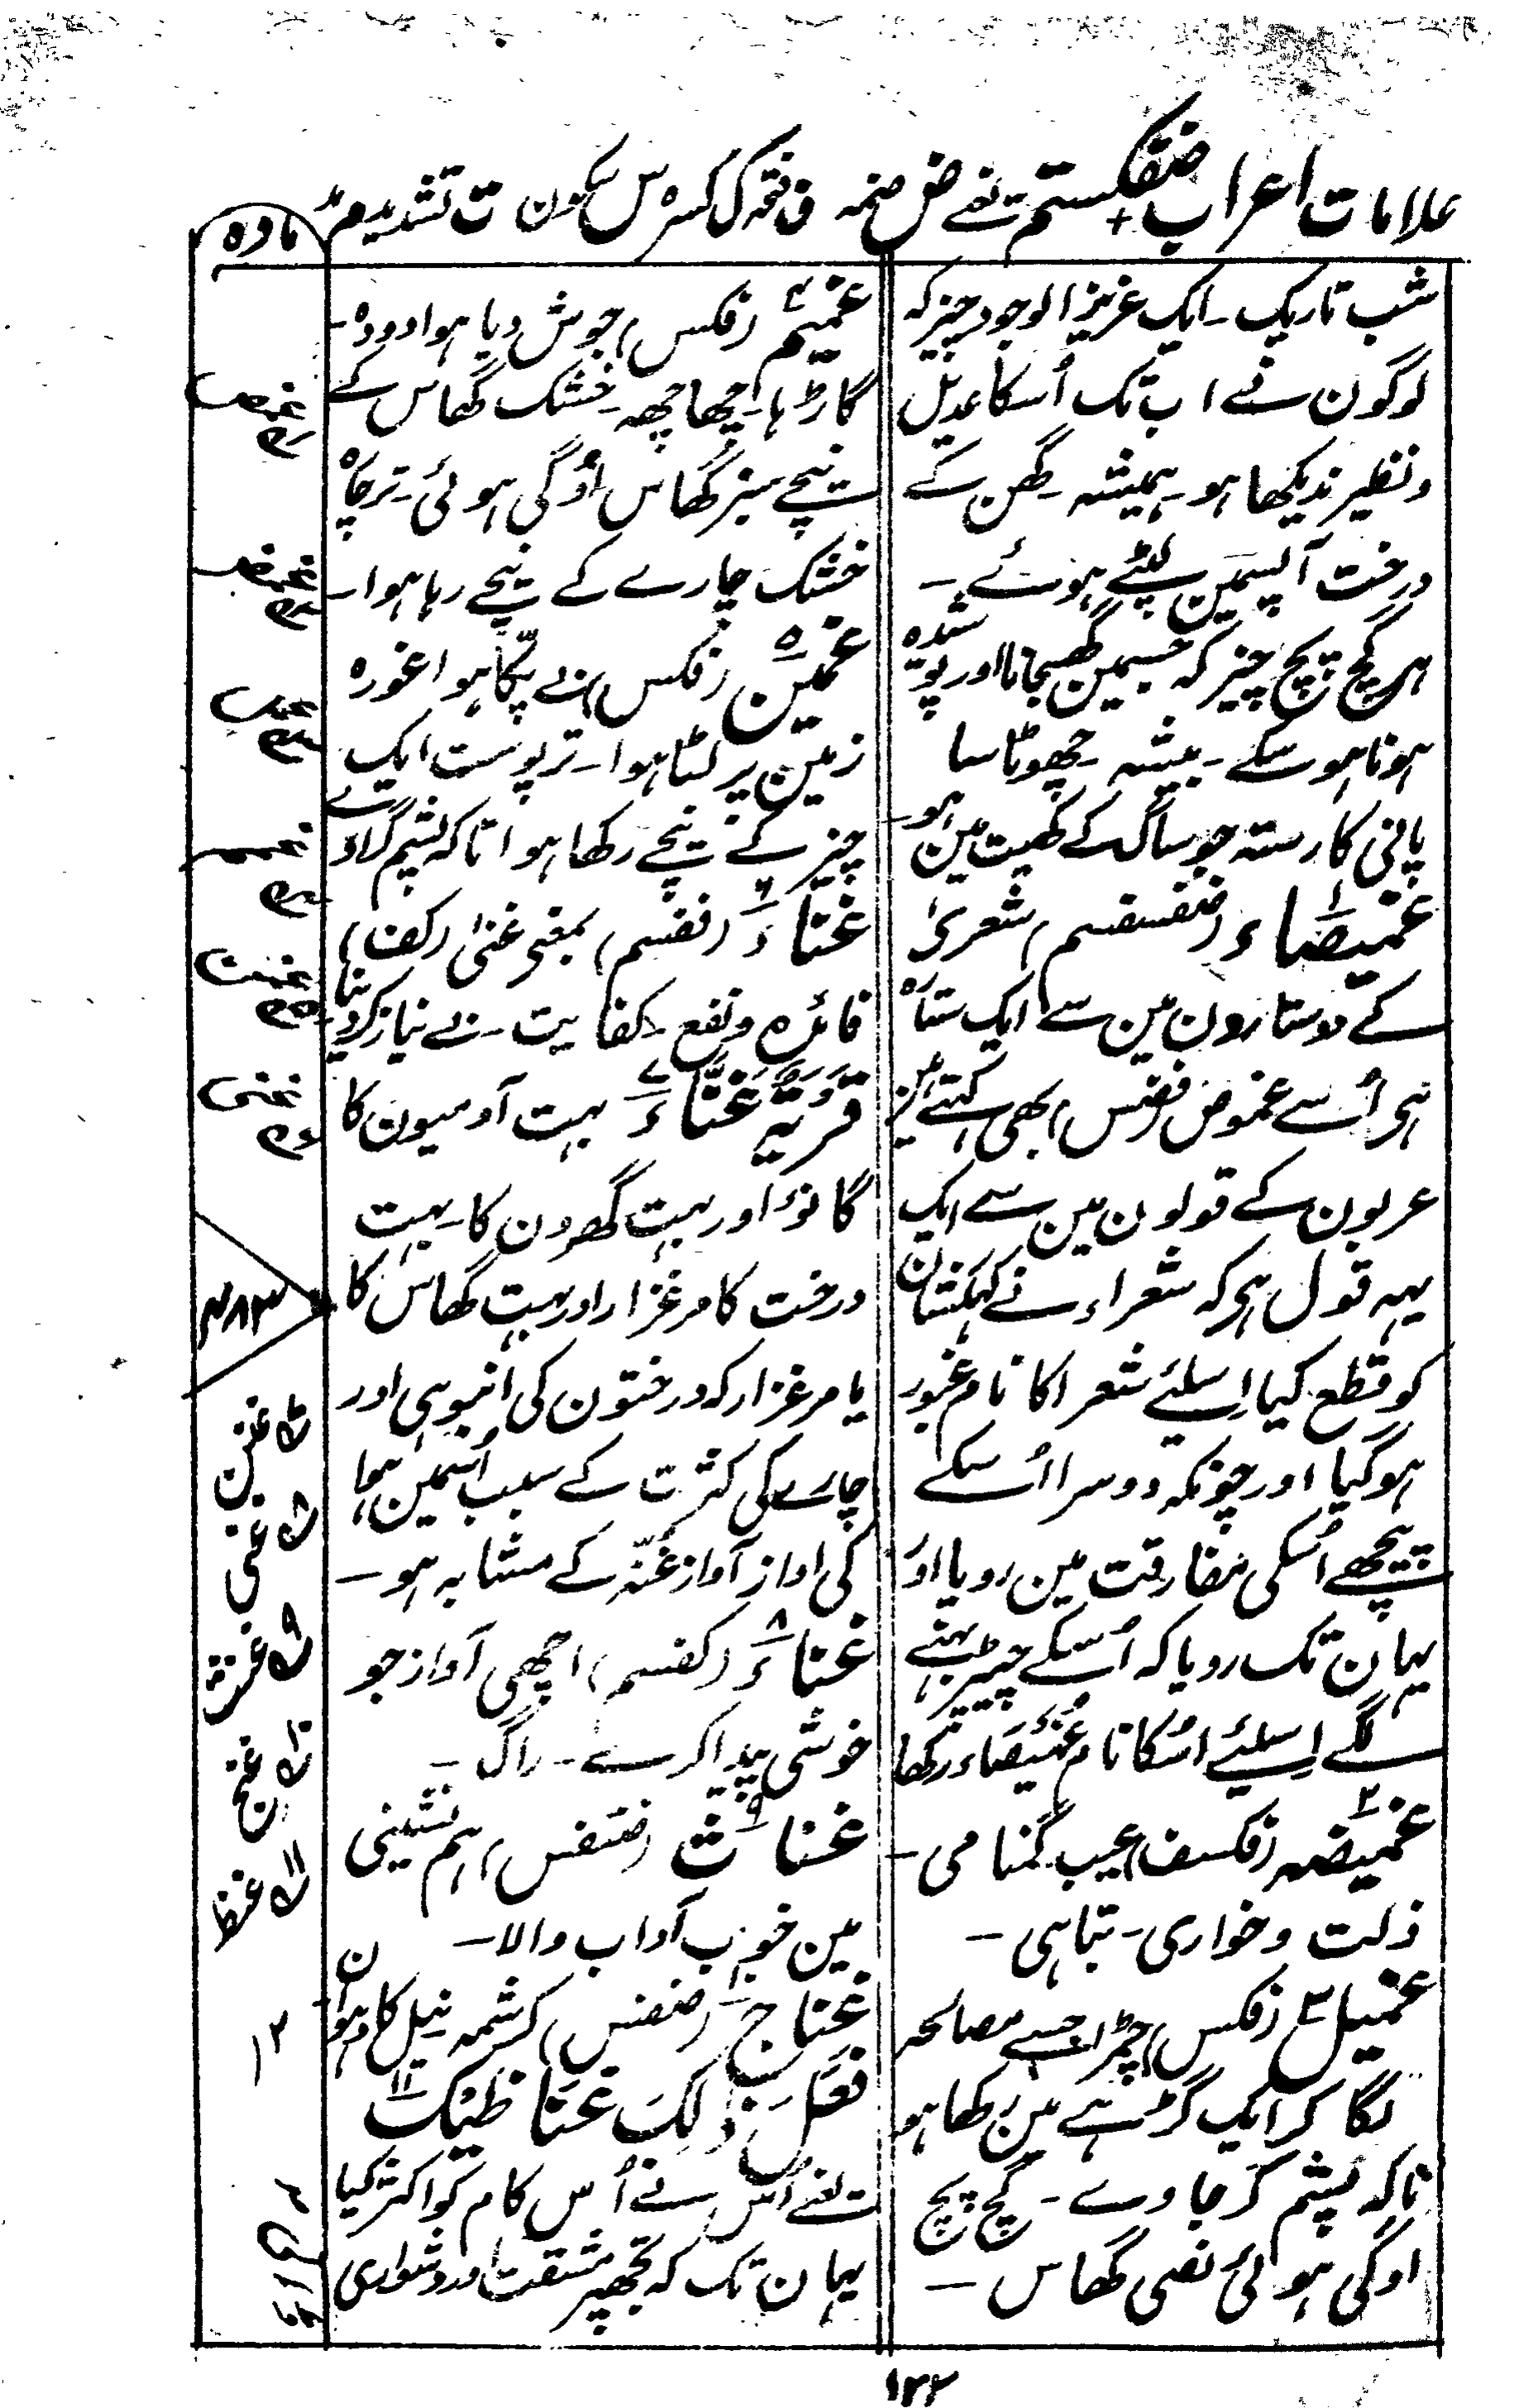 علامات اعراب ضفکستم یعنے ض ضمہ ف فتحہ ک کسرہ س سکون ت تشدید م مد
مادہ
شب تاریک ۔ ایک عزیز الوجود چیز کہ
لوگون نے اب تک اُسکا عدیل
و نظیر ندیکھا ہو ۔ ہمیشہ ۔ گھن کے
درخت آپسمین لپٹے ہوئے ۔
ہر گچ پچ چیز کہ جسمین گھسجانا اور پوشیدہ
ہونا ہو سکے ۔ بیشہ ۔ چھوٹا سا
پانی کا رستہ جو ساگ کے کھیت مین ہو ۔
غمیصاء ۱ (ضفسفم) شعریٰ
کے دو ستارون مین سے ایک ستارہ
ہی اُسے غموض (فضس) بھی کہتے ہین
عربون کے قولون مین سے ایک
یہہ قول ہی کہ شعراء نے کہکشان
کو قطع کیا اِسلئے شعرا کا نام عبور
ہو گیا اور چونکہ دوسرا اُسکے
پیچھے اُسکی مفارقت مین رویا اور
یہان تک رویا کہ اُسکے چیپڑ بہنے
لگے اِسلیئے اُسکا نام غُمَیْصَاء رکھا
غمیضہ ۲ (فکسف) عیب گمنامی ۔
ذلت و خواری ۔ تباہی ۔
غمیل ۳ (فکس) چمڑا جسے مصالحہ
لگا کر ایک گڑہے مین رکھا ہو
تاکہ پشم گر جاوے ۔ گچ پچ
اوگی ہوئی نصی گھاس ۔
غمیم ۴ (فکس) جوش دیا ہوا دودہ ۔
گاڑہا ۔ چھاچھہ ۔ خشک گھاس کے
نیچے سبز گھاس اوگی ہوئی ۔ تر چارہ
خشک چارے کے نیچے رہا ہوا ۔
غمین ۵ (فکس) بے پکا ہوا غورہ
زمین پر لٹا ہوا ۔ تر پوست ایک
چیز کے نیچے رکھا ہوا تاکہ پشم گراوے
غناء ۶ (ففسم) بمعنی غنیٰ (کف)
فائدہ و نفع ۔ کفایت ۔ بے نیاز کردینا ۔
قَرْیَۃٌ غَنَّاءُ ۷ بہت آدمیون کا
گانوٴ اور بہت گھرون کا ۔ بہت
درخت کا مرغزار اور بہت گھاس کا
یا مرغزار کہ درختون کی انبوہی اور
چارے کی کثرت کے سبب اُسمین ہوا
کی اواز آواز غُنّہ کے مشابہ ہو ۔
غناء ۸ (کفسم) اچھی آواز جو
خوشی پیدا کرے ۔ راگ ۔
غناث ۹ (ضتفس) ہم نشینی
مین خوب آداب والا ۔
غناج ۱۰ (ضفس) کرشمہ نیل کا دہوان
فَعَلَ ذٰلِکَ غَنَا ظَیْکَ ۱۱
یعنے اُس نے اُس کام کو اکثر کیا
یہان تک کہ تجھپر مشقت اور دشواری
غمص
غمض
غمل
غمم
غمن
غنی
۷ غنن
۸ غنی
۹ غنث
۱۰ غنج
۱۱ غنظ
۱۲
۱۲۲